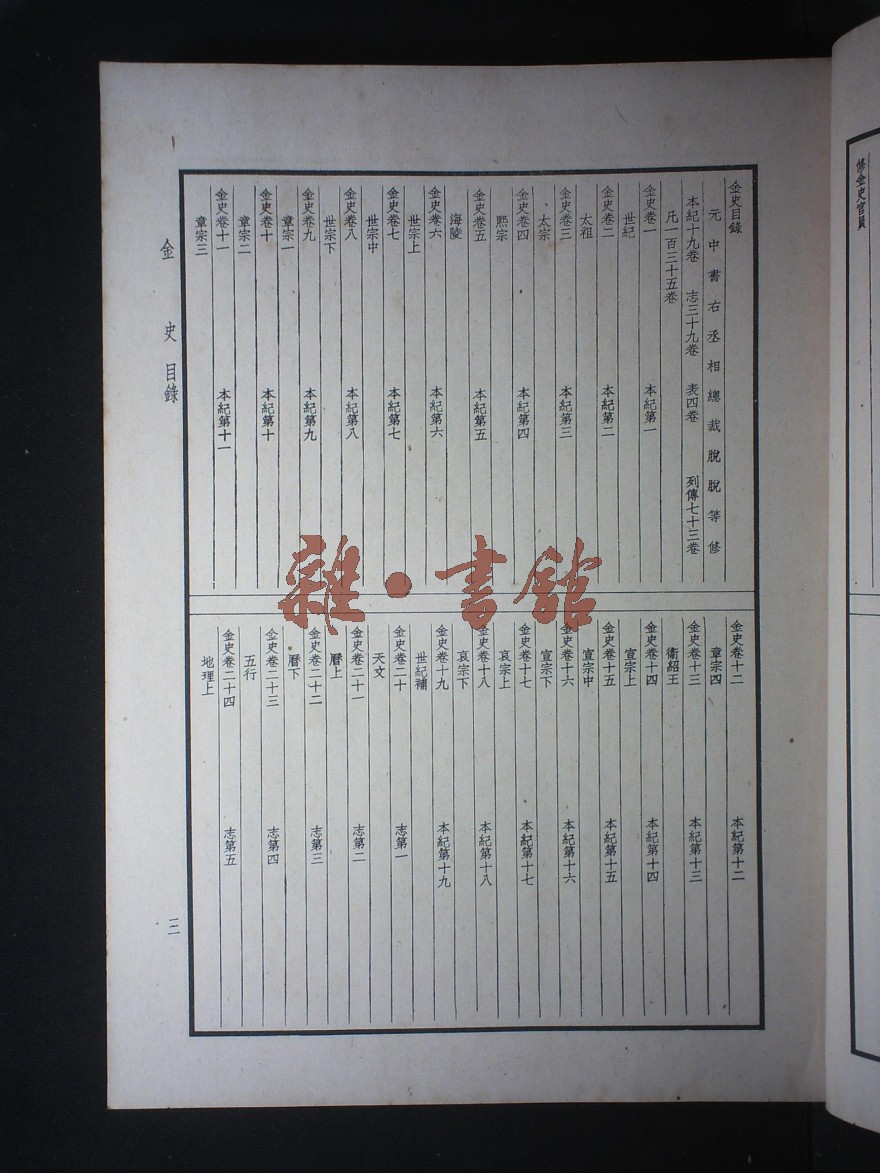 修金史官員
金史目錄
元中書右丞相總裁脫脫等修
本紀十九卷 志三十九卷 表四卷 列傳七十三卷
凡一百三十五卷
金史卷一 本紀第一
世紀
金史卷二 本紀第二
太祖
金史卷三 本紀第三
太宗
金史卷四 本紀第四
熙宗
金史卷五 本紀第五
海陵
金史卷六 本紀第六
世宗上
金史卷七 本紀第七
世宗中
金史卷八 本紀第八
世宗下
金史卷九 本紀第九
章宗一
金史卷十 本紀第十
章宗二
金史卷十一 本紀第十一
章宗三
金史卷十二 本紀第十二
章宗四
金史卷十三 本紀第十三
衛紹王
金史卷十四 本紀第十四
宣宗上
金史卷十五 本紀第十五
宣宗中
金史卷十六 本紀第十六
宣宗下
金史卷十七 本紀第十七
哀宗上
金史卷十八 本紀第十八
哀宗下
金史卷十九 本紀第十九
世紀補
金史卷二十 志第一
天文
金史卷二十一 志第二
曆上
金史卷二十二 志第三
曆下
金史卷二十三 志第四
五行
金史卷二十四 志第五
地理上
金史 目錄
雜·書館